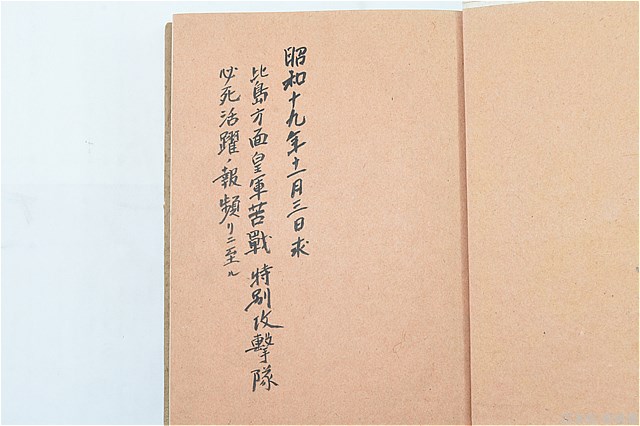 昭和十九年十一月三日求
比島方面皇軍苦戰特別攻擊隊
必死活躍ノ報頻リニ至ル